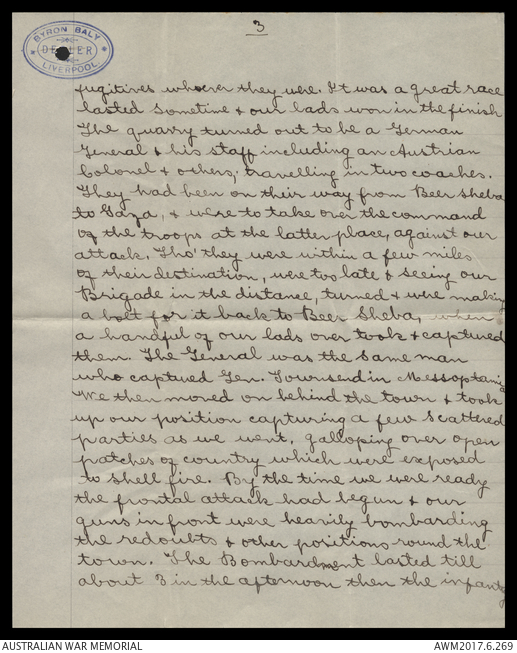 3
BYRON BALY
DEALER
LIVERPOOL
fugitives whoever they were. It was a great race
lasted sometime & our lads won in the finish
The quarry turned out to be a German
General & his staff including an Austrian
Colonel & others, travelling in two coaches.
They had been on their way from Beer Sheba
to Gaza, & were to take over the command
of the troops at the latter place, against our
attack. Tho' they were within a few miles
of their destination, were too late & seeing our
Brigade in the distance, turned & were making
a bolt for it back to Beer Sheba, when
a handful of our lads over took & captured
them. The General was the same man
who captued Gen. Townsend in Messoptamia
We then moved on behind the town & took
up our position capturing a few scattered
parties as we went, galloping over open
patches of country which were exposed
to shell fire. By the time we were ready
the frontal attack had begun & our
guns in front were heavily bombarding
the redoubts & other positions round the
town. The Bombardment lasted till
about 3 in the afternoon then the infantry
AUSTRALIAN WAR MEMORIAL
AWM2017.6.269